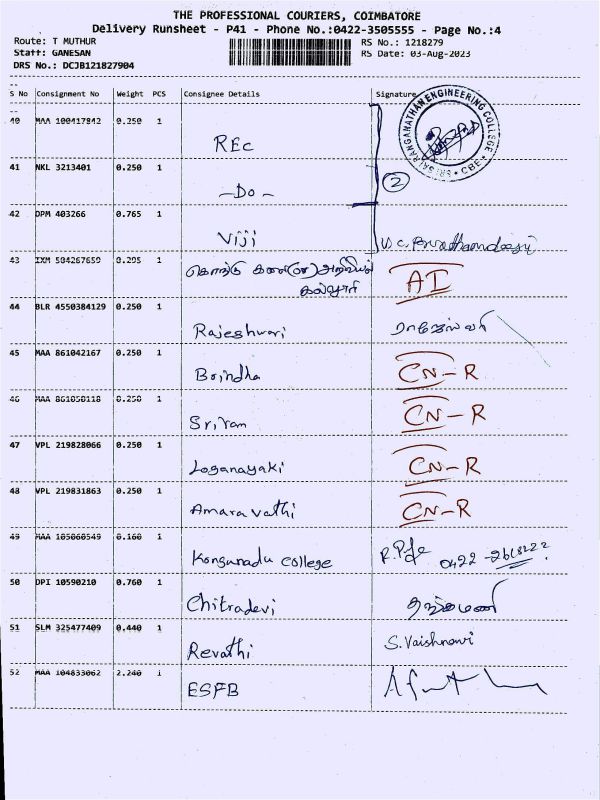 THE PROFESSIONAL COURIERS, COIMBATORE
Delivery Runsheet - P41 - Phone No.:0422-3505555 - Page No.:4
Route: T MUTHUR RS No.: 1218279
Staff: GANESAN RS Date: 03-Aug-2023
DRS No.: DCJB121827904
S No Consignment No Weight PCS Consignee Details Signature
40 MAA 100417842 0.250 1
REC
SRI RANGANATHAN ENGINEERING COLLEGE * CBE *
41 NKL 3213401 0.250 1
-Do-
2
42 DPM 403266 0.765 1
Viji
43 IXM 504267659 0.295 1
கொங்கு கலை(ம) அறிவியல்
கல்லூரி
AI
44 BLR 4550384129 0.250 1
Rajeshwari ராஜேஸ்வரி
45 MAA 861042167 0.250 1
Brindha CN-R
46 MAA 861050118 0.250 1
Sriram CN-R
47 VPL 219828066 0.250 1
Loganayaki CN-R
48 VPL 219831863 0.250 1
Amaravathi CN-R
49 MAA 105060549 0.160 1
Kongunadu College 0422-2618222
50 DPI 10590210 0.760 1
Chitradevi தங்கமணி
51 SLM 325477409 0.440 1
Revathi S.Vaishnavi
52 MAA 104833062 2.240 1
ESFB